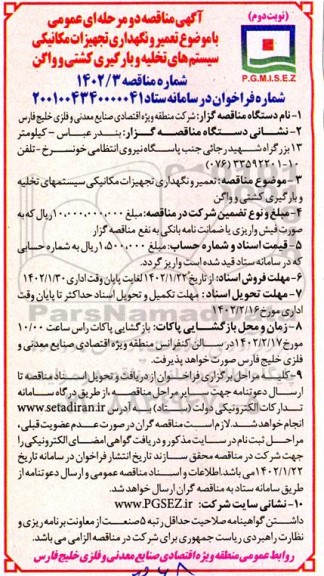 (نوبت دوم)
آگهی مناقصه دو مرحله ای عمومی
با موضوع تعمیر و نگهداری تجهیزات مکانیکی
سیستم های تخلیه و بارگیری کشتی و واگن
P.G.M.I.S.E.Z
شماره مناقصه ۱۴۰۲/۳
شماره فراخوان در سامانه ستاد ۲۰۰۱۰۰۴۳۴۰۰۰۰۰۴۱
۱- نام دستگاه مناقصه گزار: شرکت منطقه ویژه اقتصادی صنایع معدنی و فلزی خلیج فارس
۲- نشانی دستگاه مناقصه گزار: بندر عباس - کیلومتر
۱۳ بزرگراه شهید رجائی جنب پاسگاه نیروی انتظامی خونسرخ - تلفن
۱۰-۳۳۵۹۲۲۰۱ (۰۷۶)
۳- موضوع مناقصه: تعمیر و نگهداری تجهیزات مکانیکی سیستمهای تخلیه
و بارگیری کشتی و واگن
۴- مبلغ و نوع تضمین شرکت در مناقصه: مبلغ ۱۰,۰۰۰,۰۰۰,۰۰۰ ریال که به
صورت فیش واریزی یا ضمانت نامه بانکی به نفع مناقصه گزار
۵- قیمت اسناد و شماره حساب: مبلغ ۱,۵۰۰,۰۰۰ ریال به شماره حسابی
که در سامانه ستاد قید شده است واریز گردد.
۶- مهلت فروش اسناد: از تاریخ ۱۴۰۲/۱/۲۲ لغایت پایان وقت اداری ۱۴۰۲/۱/۳۰
۷- مهلت تحویل اسناد: مهلت تکمیل و تحویل اسناد حداکثر تا پایان وقت
اداری مورخ ۱۴۰۲/۲/۱۶
۸- زمان و محل بازگشایی پاکات: بازگشایی پاکات راس ساعت ۱۰/۰۰
مورخ ۱۴۰۲/۲/۱۷ در سالن کنفرانس منطقه ویژه اقتصادی صنایع معدنی و
فلزی خلیج فارس صورت خواهد پذیرفت.
۹- کلیه مراحل برگزاری فراخوان از دریافت و تحویل اسناد مناقصه تا
ارسال دعوتنامه جهت سایر مراحل مناقصه، از طریق درگاه سامانه
تدارکات الکترونیکی دولت (ستاد) به آدرس www.setadiran.ir
انجام خواهد شد. لازم است مناقصه گران در صورت عدم عضویت قبلی،
مراحل ثبت نام در سایت مذکور و دریافت گواهی امضای الکترونیکی را
جهت شرکت در مناقصه محقق سازند تاریخ انتشار فراخوان در سامانه تاریخ
۱۴۰۲/۱/۲۲ می باشد. اطلاعات و اسناد مناقصه عمومی و ارسال دعوتنامه از
طریق سامانه ستاد به مناقصه گران ارسال خواهد شد.
۱۰- نشانی سایت شرکت: www.PGSEZ.ir
داشتن گواهینامه صلاحیت حداقل رتبه ۵ صنعت از معاونت برنامه ریزی و
نظارت راهبردی ریاست جمهوری برای شرکت در مناقصه الزامی می باشد.
روابط عمومی منطقه ویژه اقتصادی صنایع معدنی و فلزی خلیج فارس